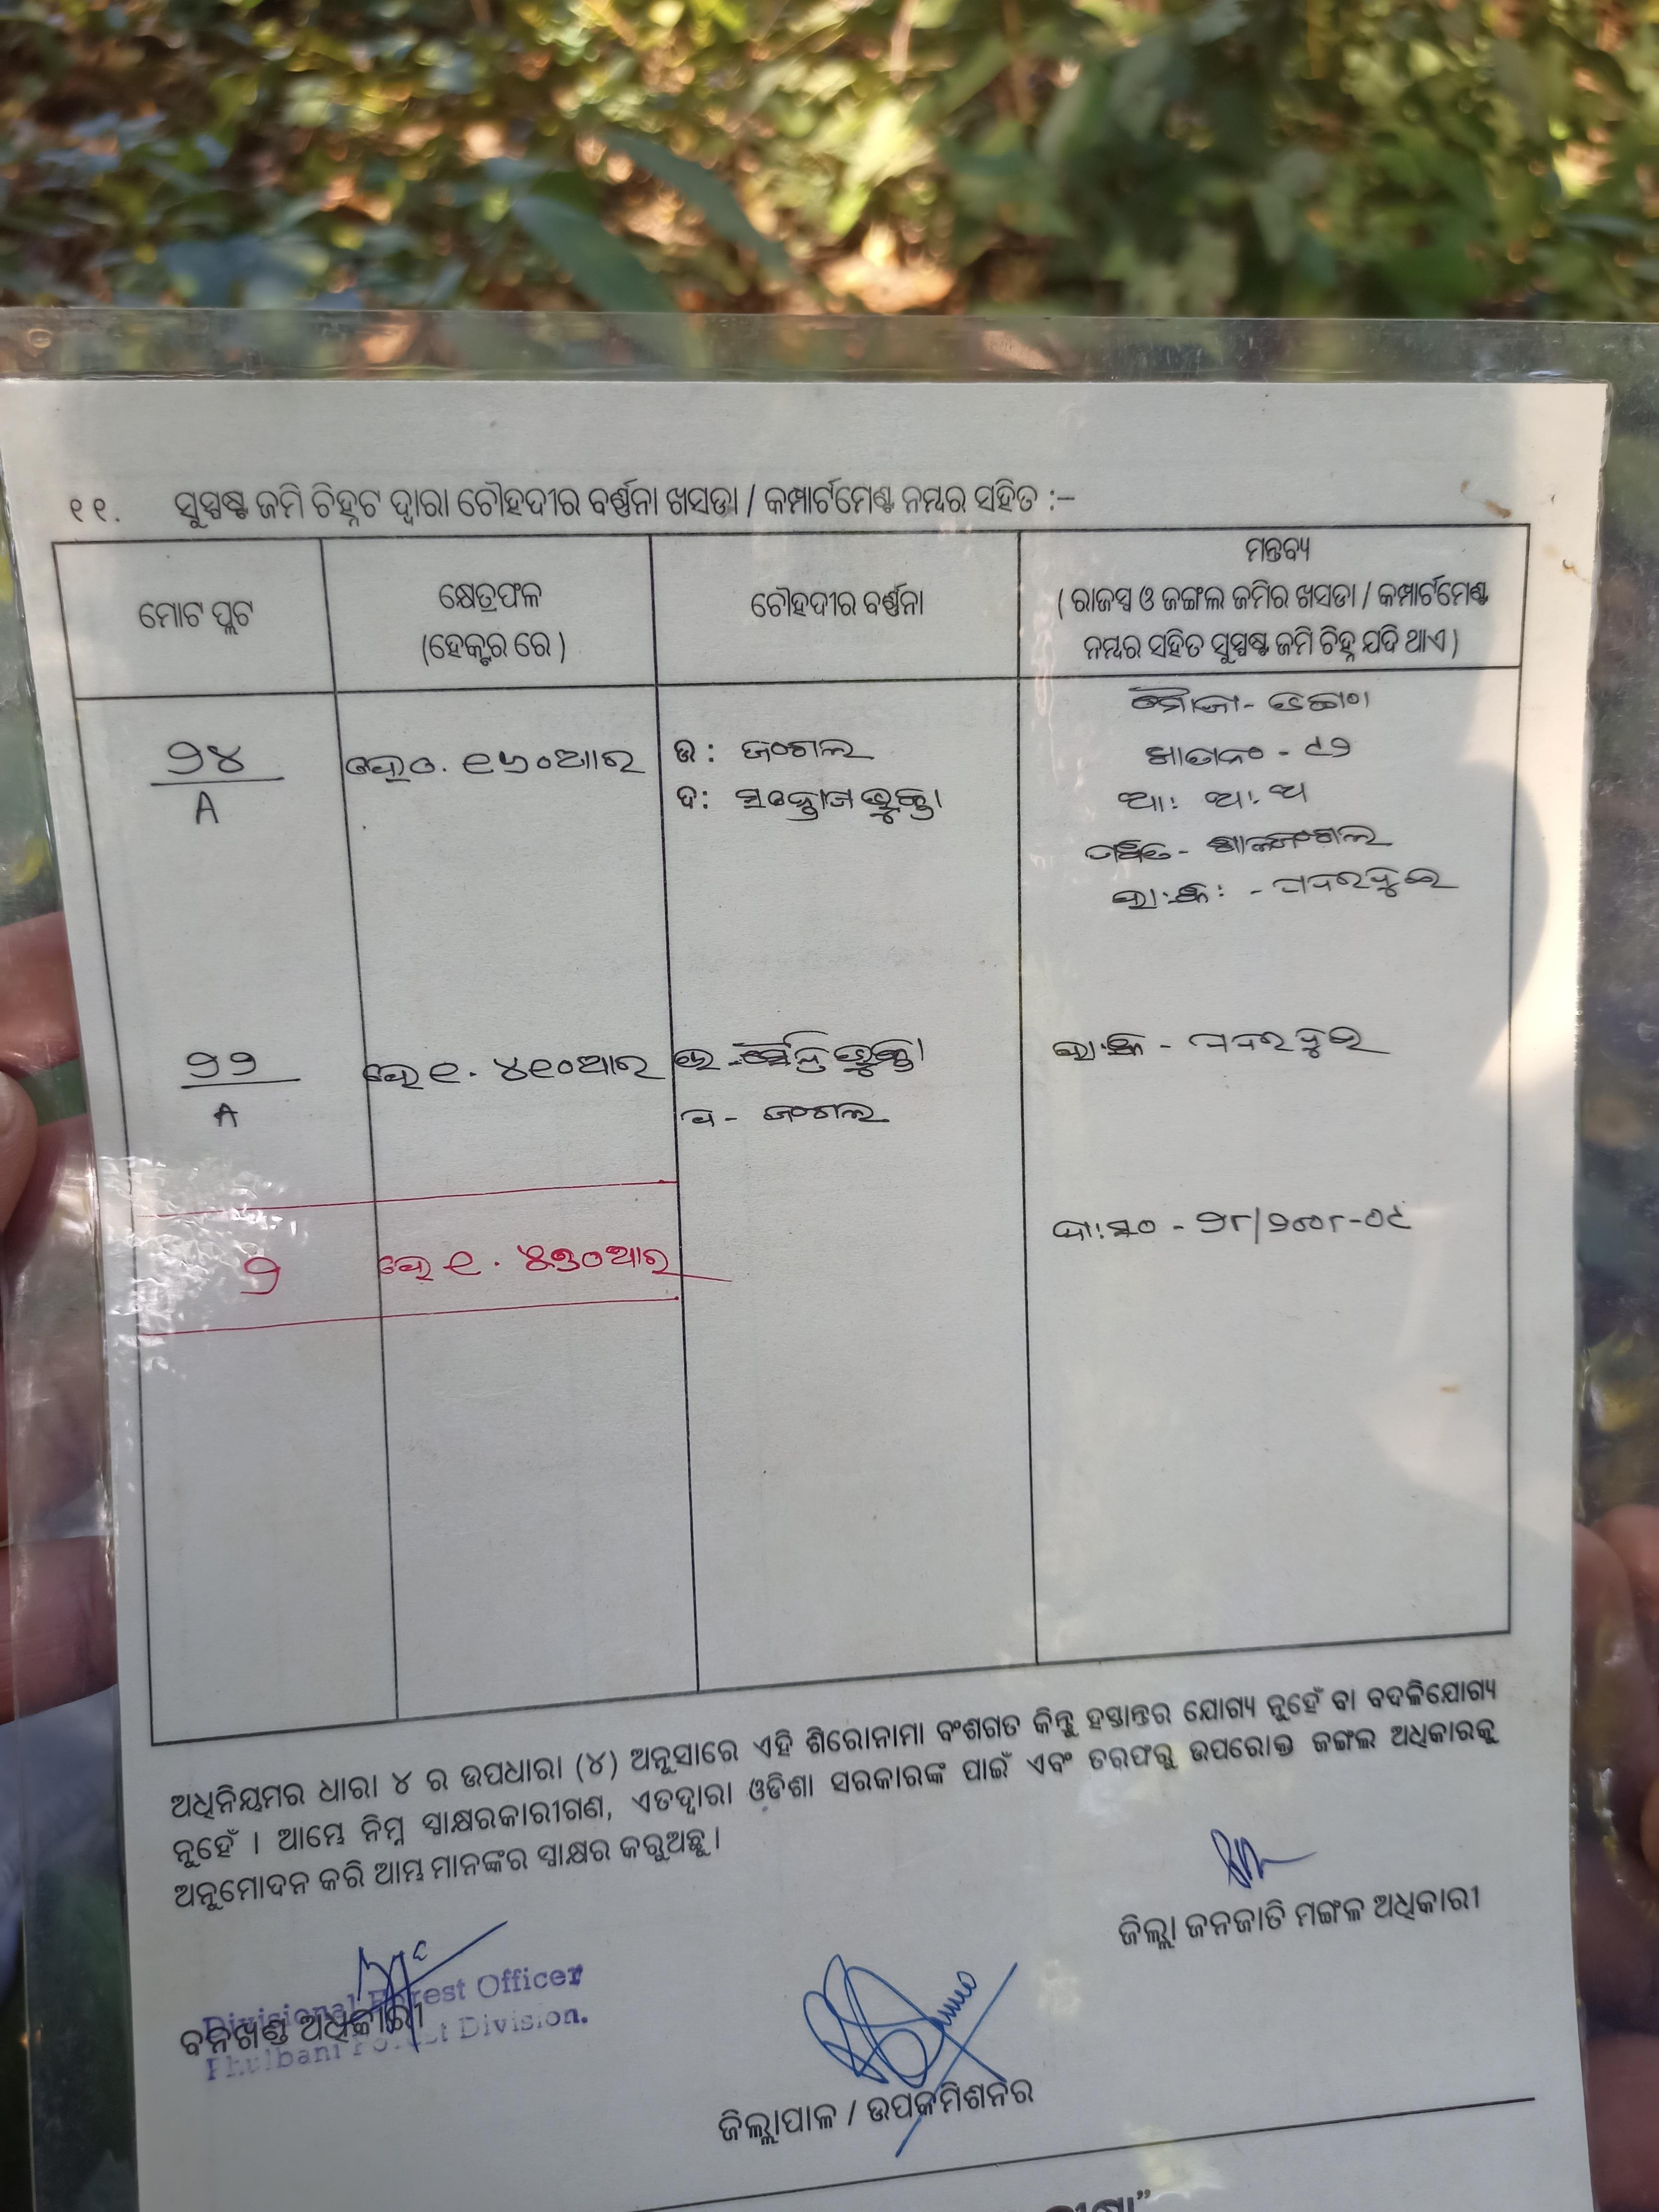 ୧୧. ସୁସ୍ପଷ୍ଟ ଜମି ଚିହ୍ନଟ ଦ୍ୱାରା ଚୌହଦୀର ବର୍ଣ୍ଣନା ଖସଡା / କମ୍ପାର୍ଟମେଣ୍ଟ ନମ୍ବର ସହିତ :-
ମୋଟ ପ୍ଲଟ
କ୍ଷେତ୍ରଫଳ
(ହେକ୍ଟର ରେ )
ଚୌହଦୀର ବର୍ଣ୍ଣନା
ମନ୍ତବ୍ୟ
( ରାଜସ୍ୱ ଓ ଜଙ୍ଗଲ ଜମିର ଖସଡା / କମ୍ପାର୍ଟମେଣ୍ଟ
ନମ୍ବର ସହିତ ସୁସ୍ପଷ୍ଟ ଜମି ଚିହ୍ନ ଯଦି ଥାଏ )
୨୪
A
ହେ ୦. ୧୬୦ଆର
ଉ : ଜଂଗଲ
ଦ :
ମୌଜା-
ଖାତା ନଂ - ୯୨
ଆ: ଅ: ଅ
ଜଂଗଲ
୨୨
A
ହେ ୧. ୪୧୦ଆର
ଜଂଗଲ
୨
ହେ ୧. ୫୭୦ଆର
ଦା: ନଂ - ୨୮/୨୦୦୮-୦୯
ଅଧିନିୟମର ଧାରା ୪ ର ଉପଧାରା (୪) ଅନୁସାରେ ଏହି ଶିରୋନାମା ବଂଶଗତ କିନ୍ତୁ ହସ୍ତାନ୍ତର ଯୋଗ୍ୟ ନୁହେଁ ବା ବଦଳିଯୋଗ୍ୟ
ନୁହେଁ । ଆମ୍ଭେ ନିମ୍ନ ସ୍ୱାକ୍ଷରକାରୀଗଣ, ଏତଦ୍ୱାରା ଓଡିଶା ସରକାରଙ୍କ ପାଇଁ ଏବଂ ତରଫରୁ ଉପରୋକ୍ତ ଜଙ୍ଗଲ ଅଧିକାରକୁ
ଅନୁମୋଦନ କରି ଆମ୍ଭ ମାନଙ୍କର ସ୍ୱାକ୍ଷର କରୁଅଛୁ ।
ଜିଲ୍ଲା ଜନଜାତି ମଙ୍ଗଳ ଅଧିକାରୀ
Divisional Forest Officer
ବନଖଣ୍ଡ ଅଧିକାରୀ
Phulbani Forest Division.
ଜିଲ୍ଲାପାଳ / ଉପକମିଶନର